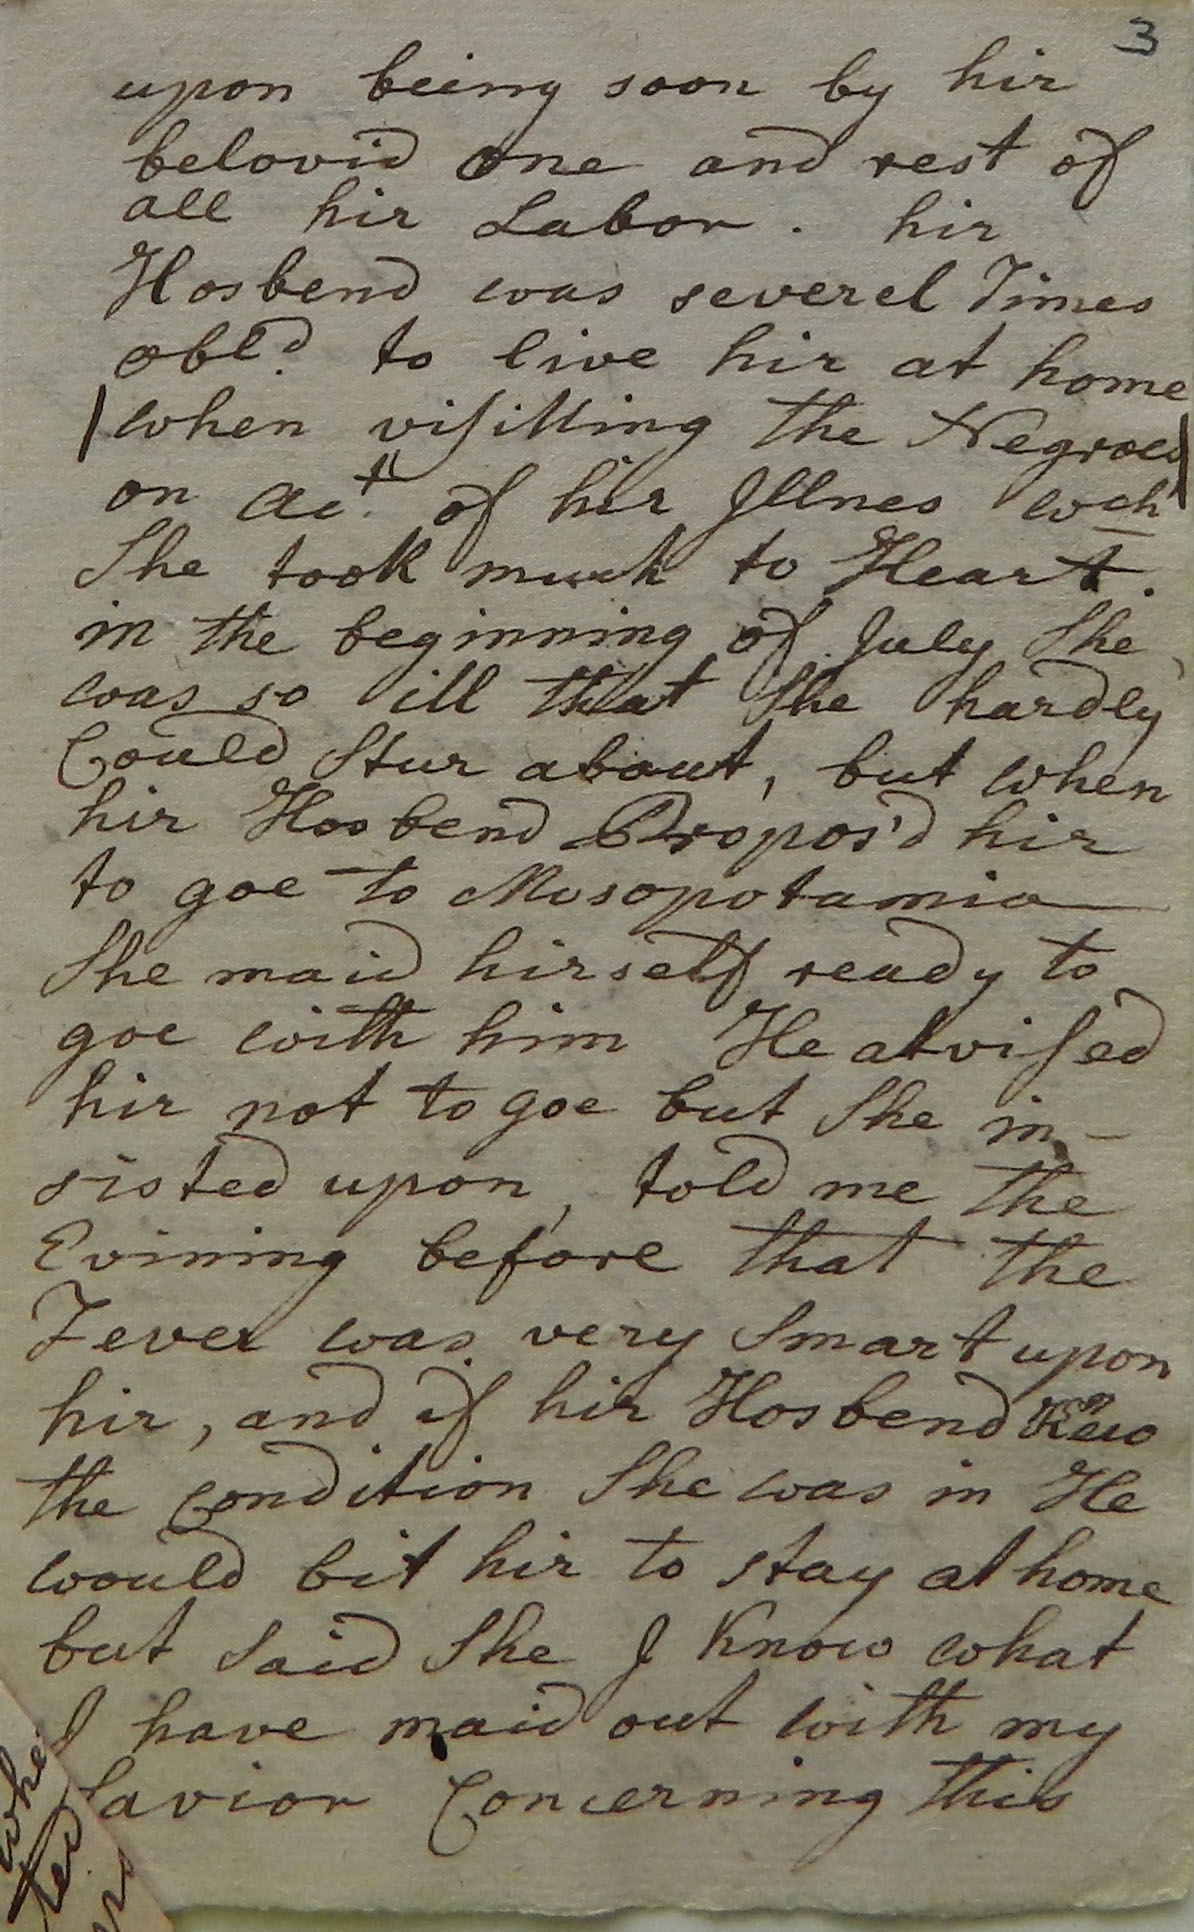 3
upon being soon by hir
belovid one and rest of
all hir Labor. hir
Hosbend was severel Times
obld. to live hir at home
when visitting the Negroes
on Act. of hir Illnes wch
She took much to Heart.
in the beginning of July She
was so ill that She hardly
Could Stur about, but when
hir Hosbend Propos'd hir
to goe to Mosopotamia
She maid hirself ready to
goe with him He atvised
hir not to goe but She in-
sisted upon, told me the
Evining before that the
Fever was very Smart upon
hir, and if hir Hosbend Knew
the Condition She was in He
would bit hir to stay at home
but Said She I Know what
I have maid out with my
Savior Concerning this